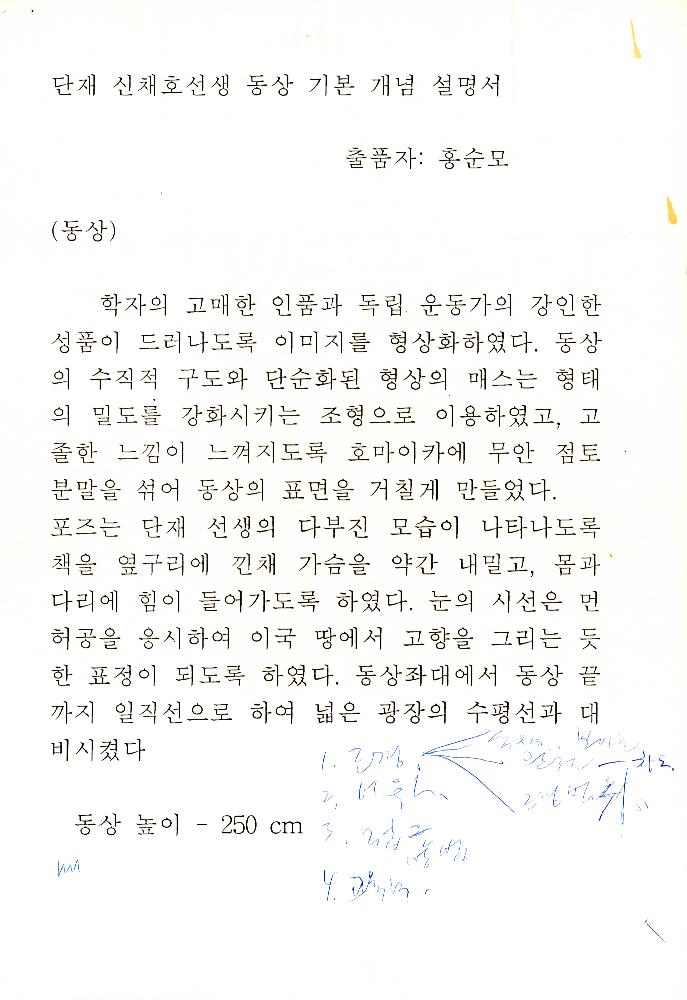 단재 신채호선생 동상 기본 개념 설명서
출품자: 홍순모
(동상)
학자의 고매한 인품과 독립 운동가의 강인한
성품이 드러나도록 이미지를 형상화하였다. 동상
의 수직적 구도와 단순화된 형상의 매스는 형태
의 밀도를 강화시키는 조형으로 이용하였고, 고
졸한 느낌이 느껴지도록 호마이카에 무안 점토
분말을 섞어 동상의 표면을 거칠게 만들었다.
포즈는 단재 선생의 다부진 모습이 나타나도록
책을 옆구리에 낀채 가슴을 약간 내밀고, 몸과
다리에 힘이 들어가도록 하였다. 눈의 시선은 먼
허공을 응시하여 이국 땅에서 고향을 그리는 듯
한 표정이 되도록 하였다. 동상좌대에서 동상 끝
까지 일직선으로 하여 넓은 광장의 수평선과 대
비시켰다
동상 높이 - 250 cm
1.
2.
3.
4.